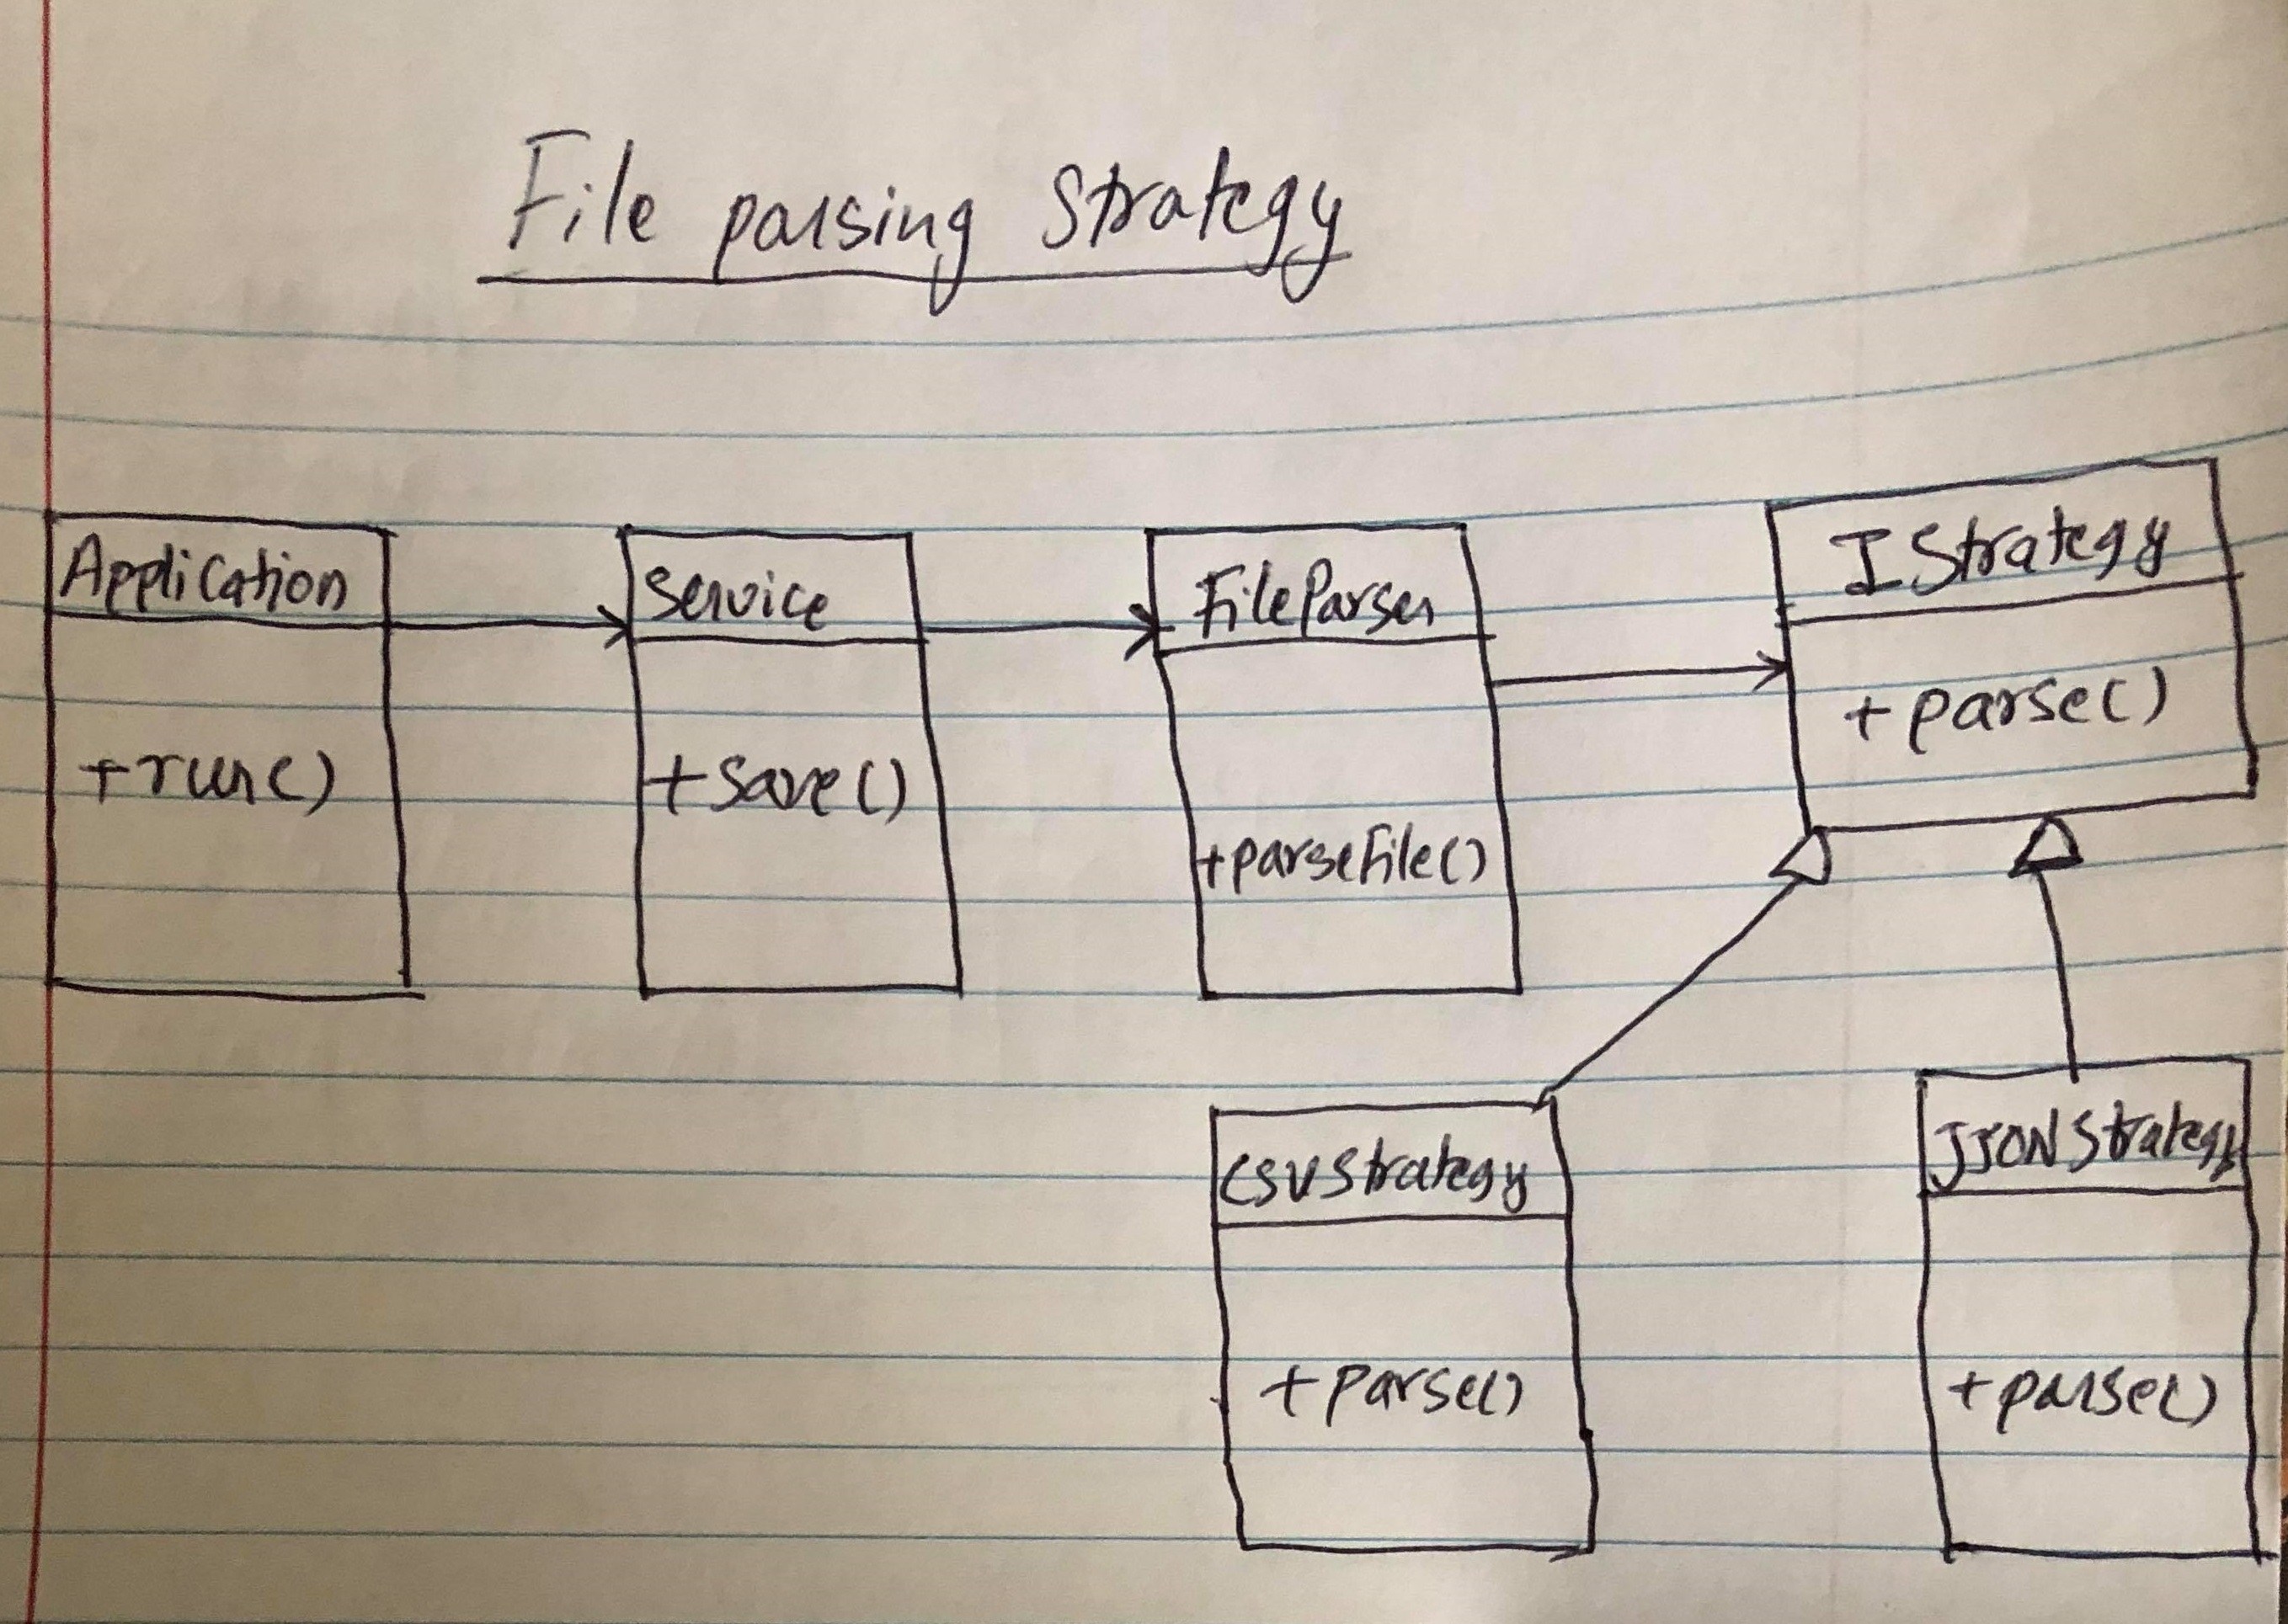 File parsing Strategy
Application
+run()
Service
+save()
FileParser
+parseFile()
IStrategy
+parse()
CSVStrategy
+parse()
JSONStrategy
+parse()